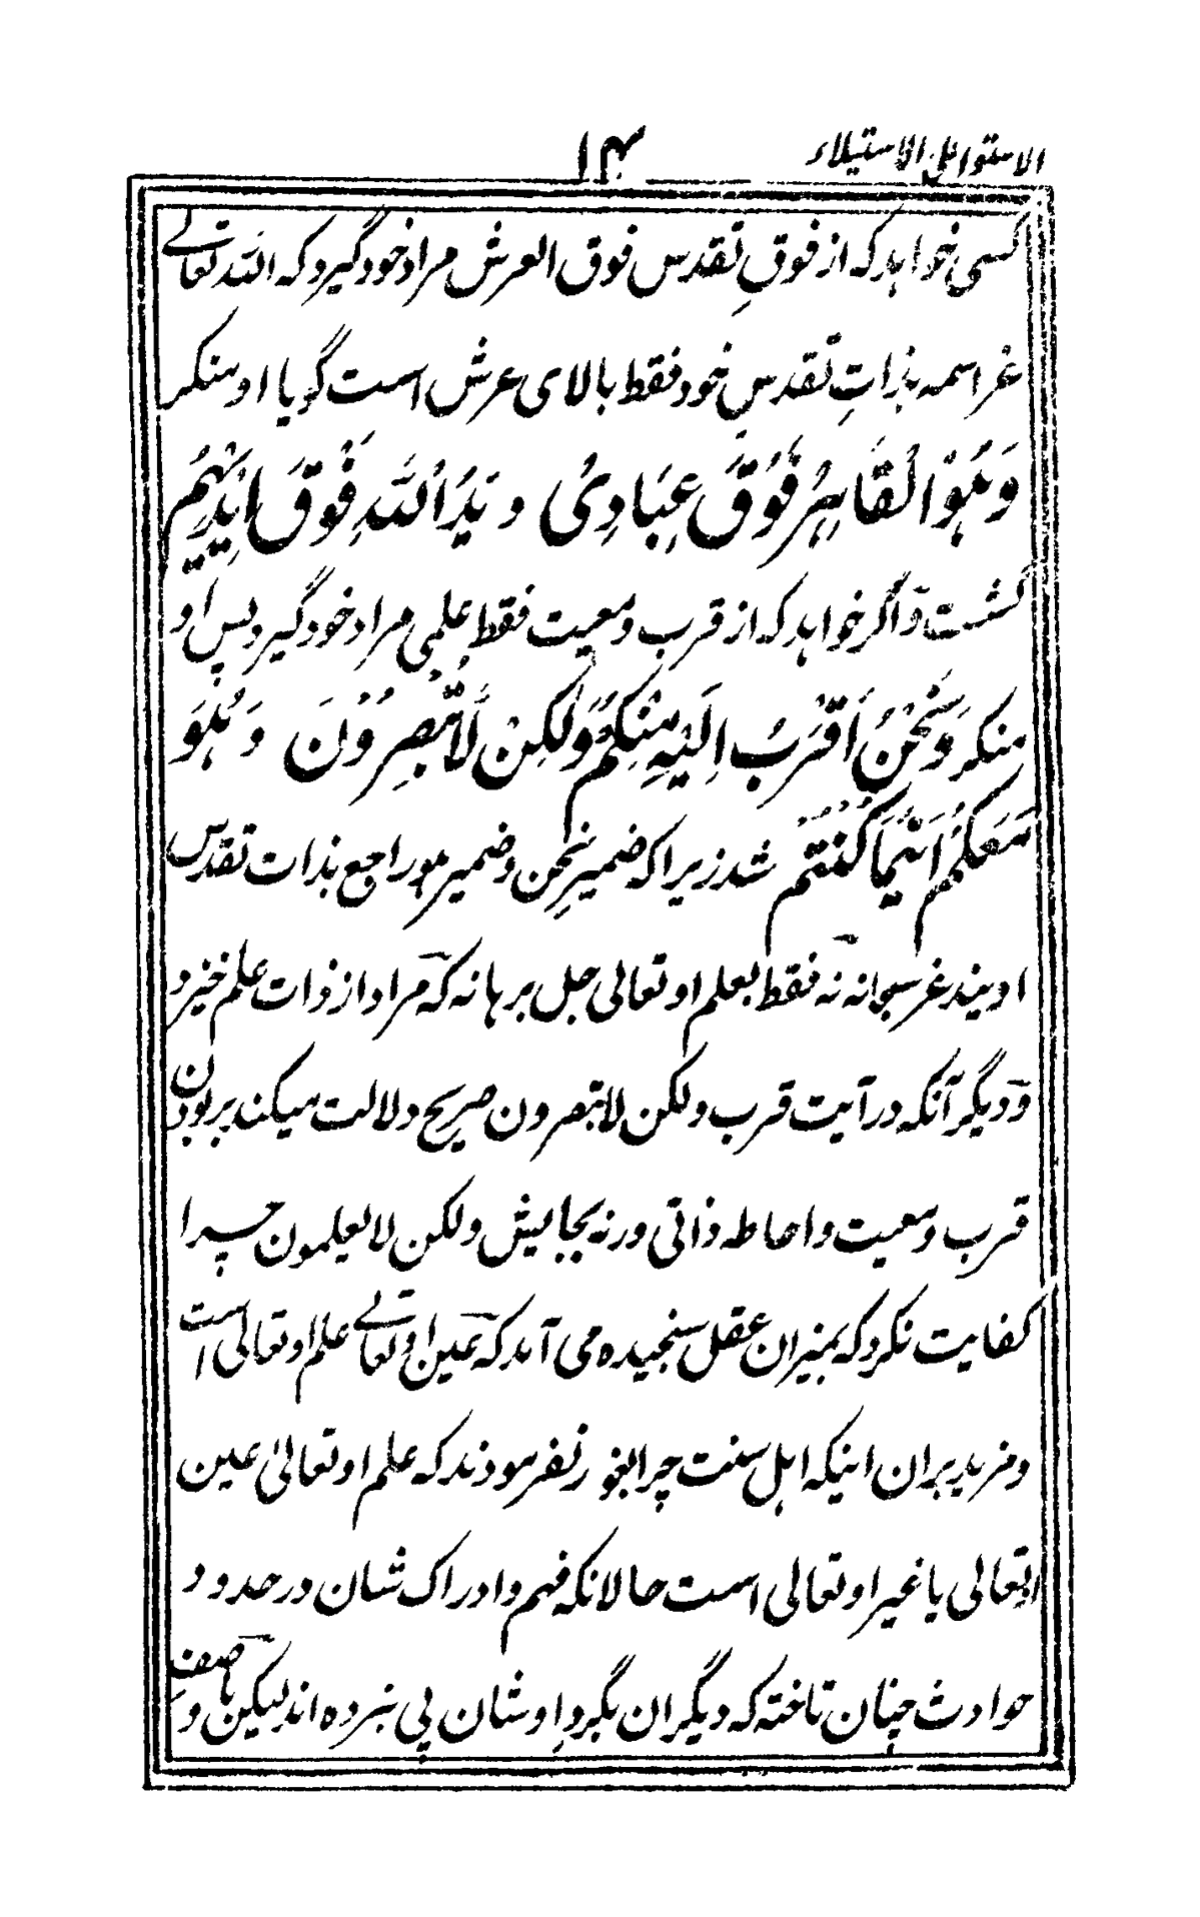 الاستواعلی الاستیلاء
۱۴
کسی خواهد که از فوقِ تقدس فوق العرش مراد خود گیرد که الله تعالے
عز اسمه بذاتِ تقدسِ خود فقط بالای عرش است گویا او منکر
وَهُوَ الْقَاهِرُ فَوْقَ عِبَادِیْ و یَدُ اللّٰهِ فَوْقَ اَیْدِیْهِمْ
گشت و اگر خواهد که از قرب و معیت فقط علمی مراد خود گیرد پس او
منکر وَنَحْنُ اَقْرَبُ اِلَیْهِ مِنْکُمْ وَلٰکِنْ لَّا تُبْصِرُوْنَ وَهُوَ
مَعَکُمْ اَیْنَمَا کُنْتُمْ شد زیرا که ضمیرِ نحن و ضمیر هو راجع بذات تقدس
اویند عز سبحانه نه فقط بعلم او تعالی جل برهانه که مراد از ذات علم خیزد
و دیگر آنکه در آیت قرب ولکن لا تبصرون صریح دلالت میکند بر بودن
قرب و معیت و احاطه ذاتی ورنه بجایش ولکن لا یعلمون چرا
کفایت نکرد که بمیزان عقل سنجیده می آمد که عین او تعالے علم او تعالی است
و مزید بران اینکه اهل سنت چرا بغور نفرمودند که علم او تعالیٰ عین
او تعالی یا غیر او تعالی است حالانکه فهم و ادراک شان در حدود
حوادث چنان تاخته که دیگران بگردِ او شان پی نبرده اند لیکن با وصفِ